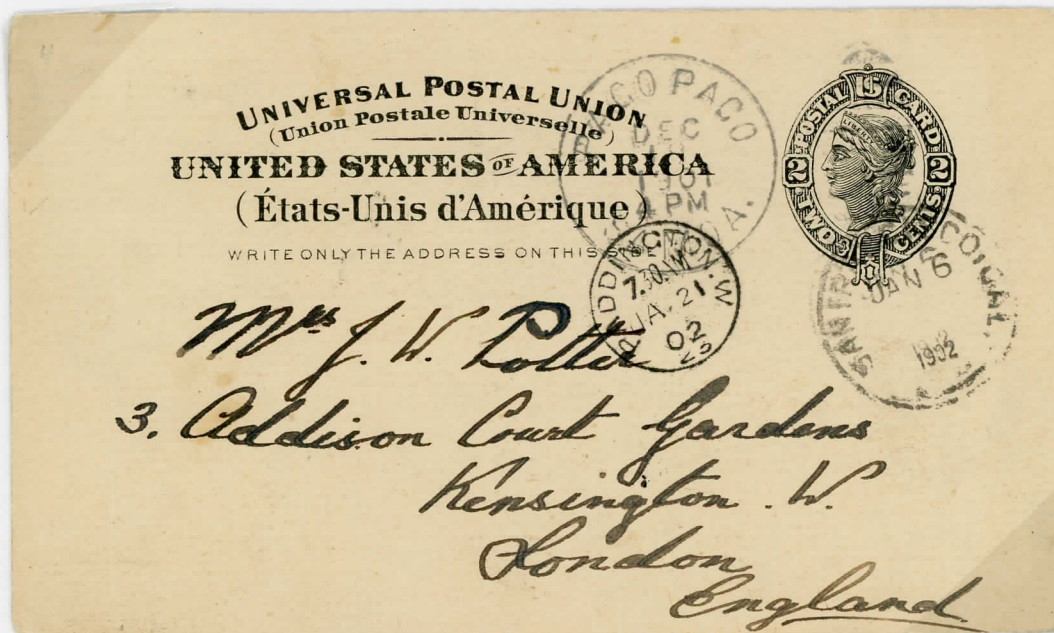 UNIVERSAL POSTAL UNION
(Union Postale Universelle)
UNITED STATES OF AMERICA
(États-Unis d'Amérique)
WRITE ONLY THE ADDRESS ON THIS SIDE
PAGO PAGO
DEC
1901
4 PM
POSTAL CARD
U.S.
LIBERTY
2 2
TWO CENTS
PADDINGTON.W
7.30AM
JA.21
02
23
SAN FRANCISCO, CAL.
JAN 6
1902
Mrs J. W. Potter
3. Addison Court Gardens
Kensington. W.
London
England